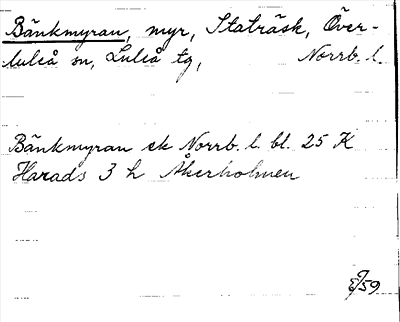 Bänkmyran, myr, Staträsk, Över-
luleå sn, Luleå tg, Norrb. l.
Bänkmyran ek Norrb. l. bl. 25 K
Harads 3 h Åkerholmen
/59